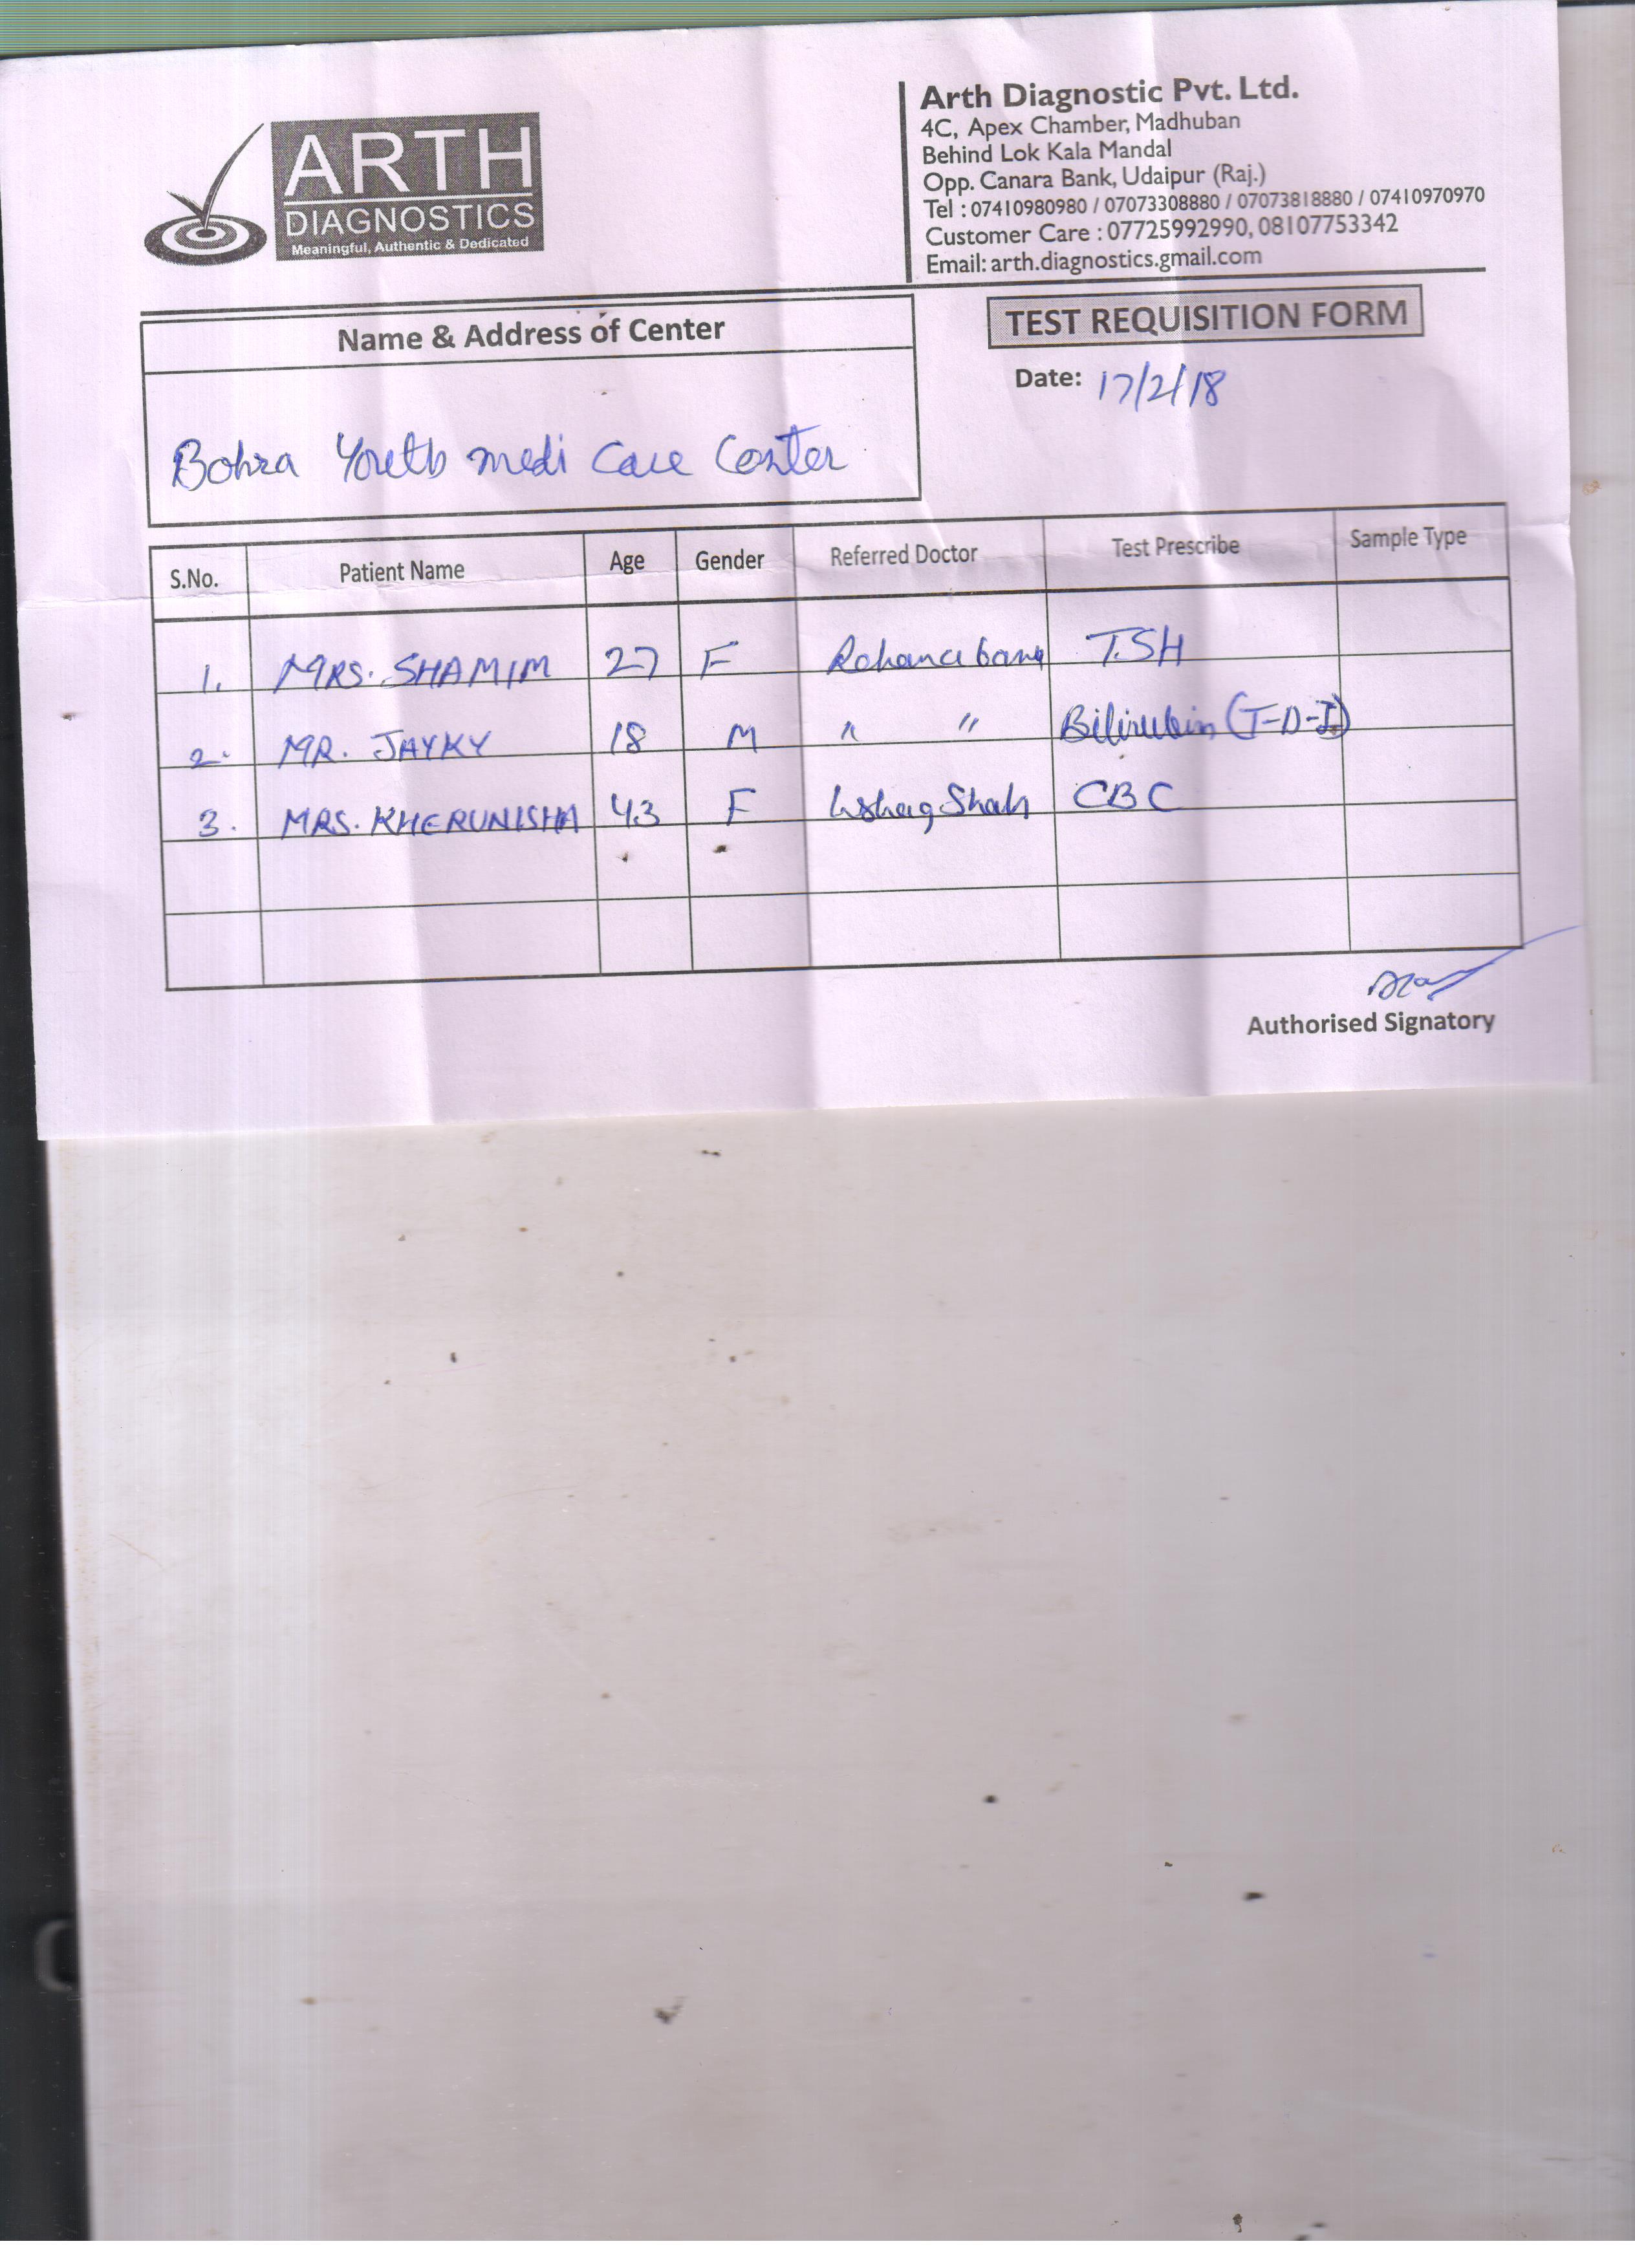 ARTH
DIAGNOSTICS
Meaningful, Authentic & Dedicated
Arth Diagnostic Pvt. Ltd.
4C, Apex Chamber, Madhuban
Behind Lok Kala Mandal
Opp. Canara Bank, Udaipur (Raj.)
Tel : 07410980980 / 07073308880 / 07073818880 / 07410970970
Customer Care : 07725992990, 08107753342
Email: arth.diagnostics.gmail.com
Name & Address of Center
TEST REQUISITION FORM
Date: 17/2/18
Bohra Youth medi Care Center
S.No. Patient Name Age Gender Referred Doctor Test Prescribe Sample Type
1. MRS. SHAMIM 27 F T.SH
2. MR. JAYKY 18 M " " Bilirubin (T-D-I)
3. MRS. KHERUNISHA 43 F Shah CBC
Authorised Signatory